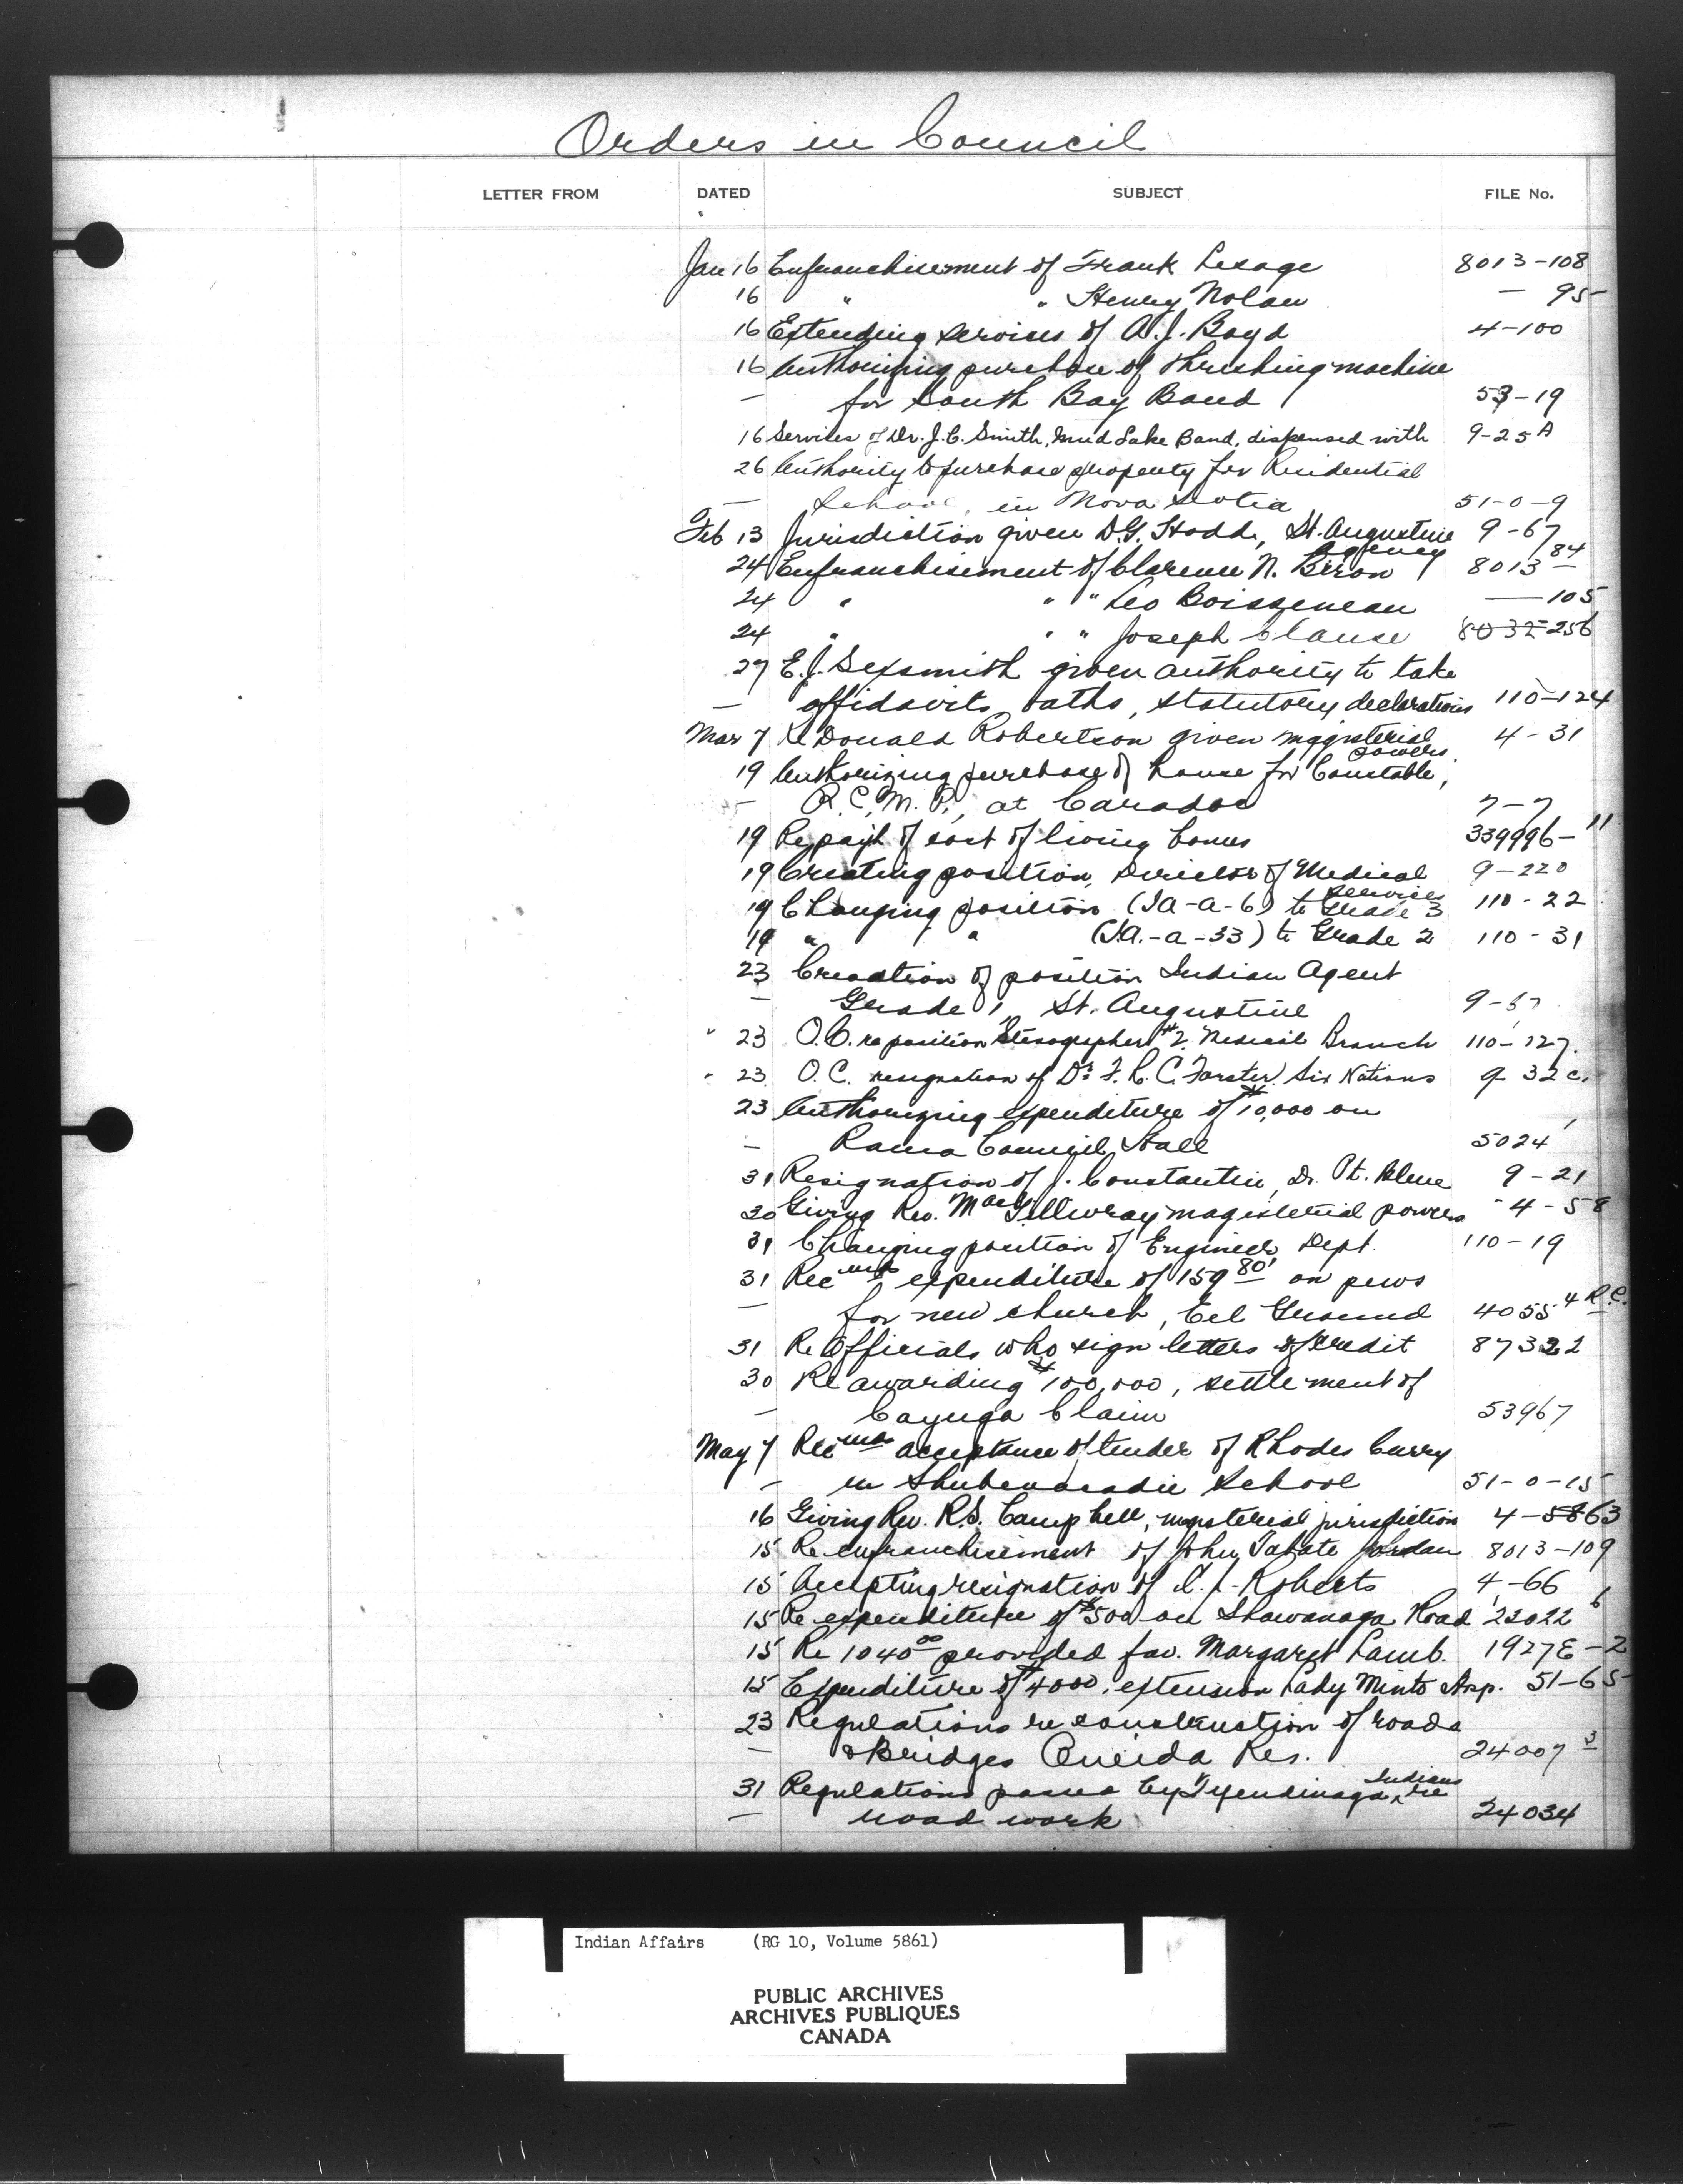 Orders in Council
LETTER FROM DATED SUBJECT FILE No.
Jan 16 Enfranchisement of Frank Lesage 8013-108
16 " " Henry Nolan — 95
16 Extending services of A.J. Boyd 4-100
16 Authorizing purchase of threshing machine
— for South Bay Band 53-19
16 Services of Dr. J.C. Smith, Mud Lake Band, dispensed with 9-25A
26 Authority to purchase property for Residential
— School, in Nova Scotia 51-0-9
Feb 13 Jurisdiction given D.G. Hodd, St. Augustine Agency 9-67
24 Enfranchisement of Clarence N. Biron 8013-84
24 " " " Leo Boisseneau — 105
24 " " " Joseph Clause 8032-256
27 E.J. Sexsmith given authority to take
— affidavits, oaths, statutory declarations 110-124
Mar 7 Re Donald Robertson given magisterial powers 4-31
19 Authorizing purchase of house for Constable,
— R.C.M.P., at Caradoc 7-7
19 Re payt of cost of living bonus 339996-11
19 Creating position, Director of Medical Services 9-220
19 Changing position (IA-A-6) to Grade 3 110-22
19 " " (I.A.-A-33) to Grade 2 110-31
23 Creaation of position Indian Agent
— Grade 1 St. Augustine 9-67
" 23 O.C. re position Stenographer #2, Medical Branch 110-127.
" 23 O.C. resignation of Dr F.L.C. Forster, Six Nations 9 32c.
23 Authorizing expenditure of $10,000 on
— Rama Council Hall 5024
31 Resignation of J. Constantin, Dr. Pt. Bleue 9-21
30 Giving Rev. MacGillivray magisterial powers 4-58
31 Changing position of Engineer, Dept. 110-19
31 Recmd expenditure of 159 80 on pews
— for new church, Eel Ground 4055 4 R.C.
31 Re Officials who sign letters of credit 87322
30 Re awarding $100,000, settlement of
— Cayuga Claim 53967
May 7 Recmd acceptance of tender of Rhodes Curry
— in Shubenacadie School 51-0-15
16 Giving Rev. R.S. Campbell, magisterial jurisdiction 4-5863
15 Re enfranchisement of John Tabate Jordan 8013-109
15 Accepting resignation of C.J. Roberts 4-66
15 Re expenditure of $500 on Shawanaga Road 22022 6
15 Re 1040 00 provided fav. Margaret Lamb. 1927E-2
15 Expenditure of $4000, extension Lady Minto Hsp. 51-65
23 Regulations re construction of roads
— & Bridges Oneida Res. 24007 3
31 Regulations passed by Tyendinaga Indians re
— road work 24034
Indian Affairs (RG 10, Volume 5861)
PUBLIC ARCHIVES
ARCHIVES PUBLIQUES
CANADA